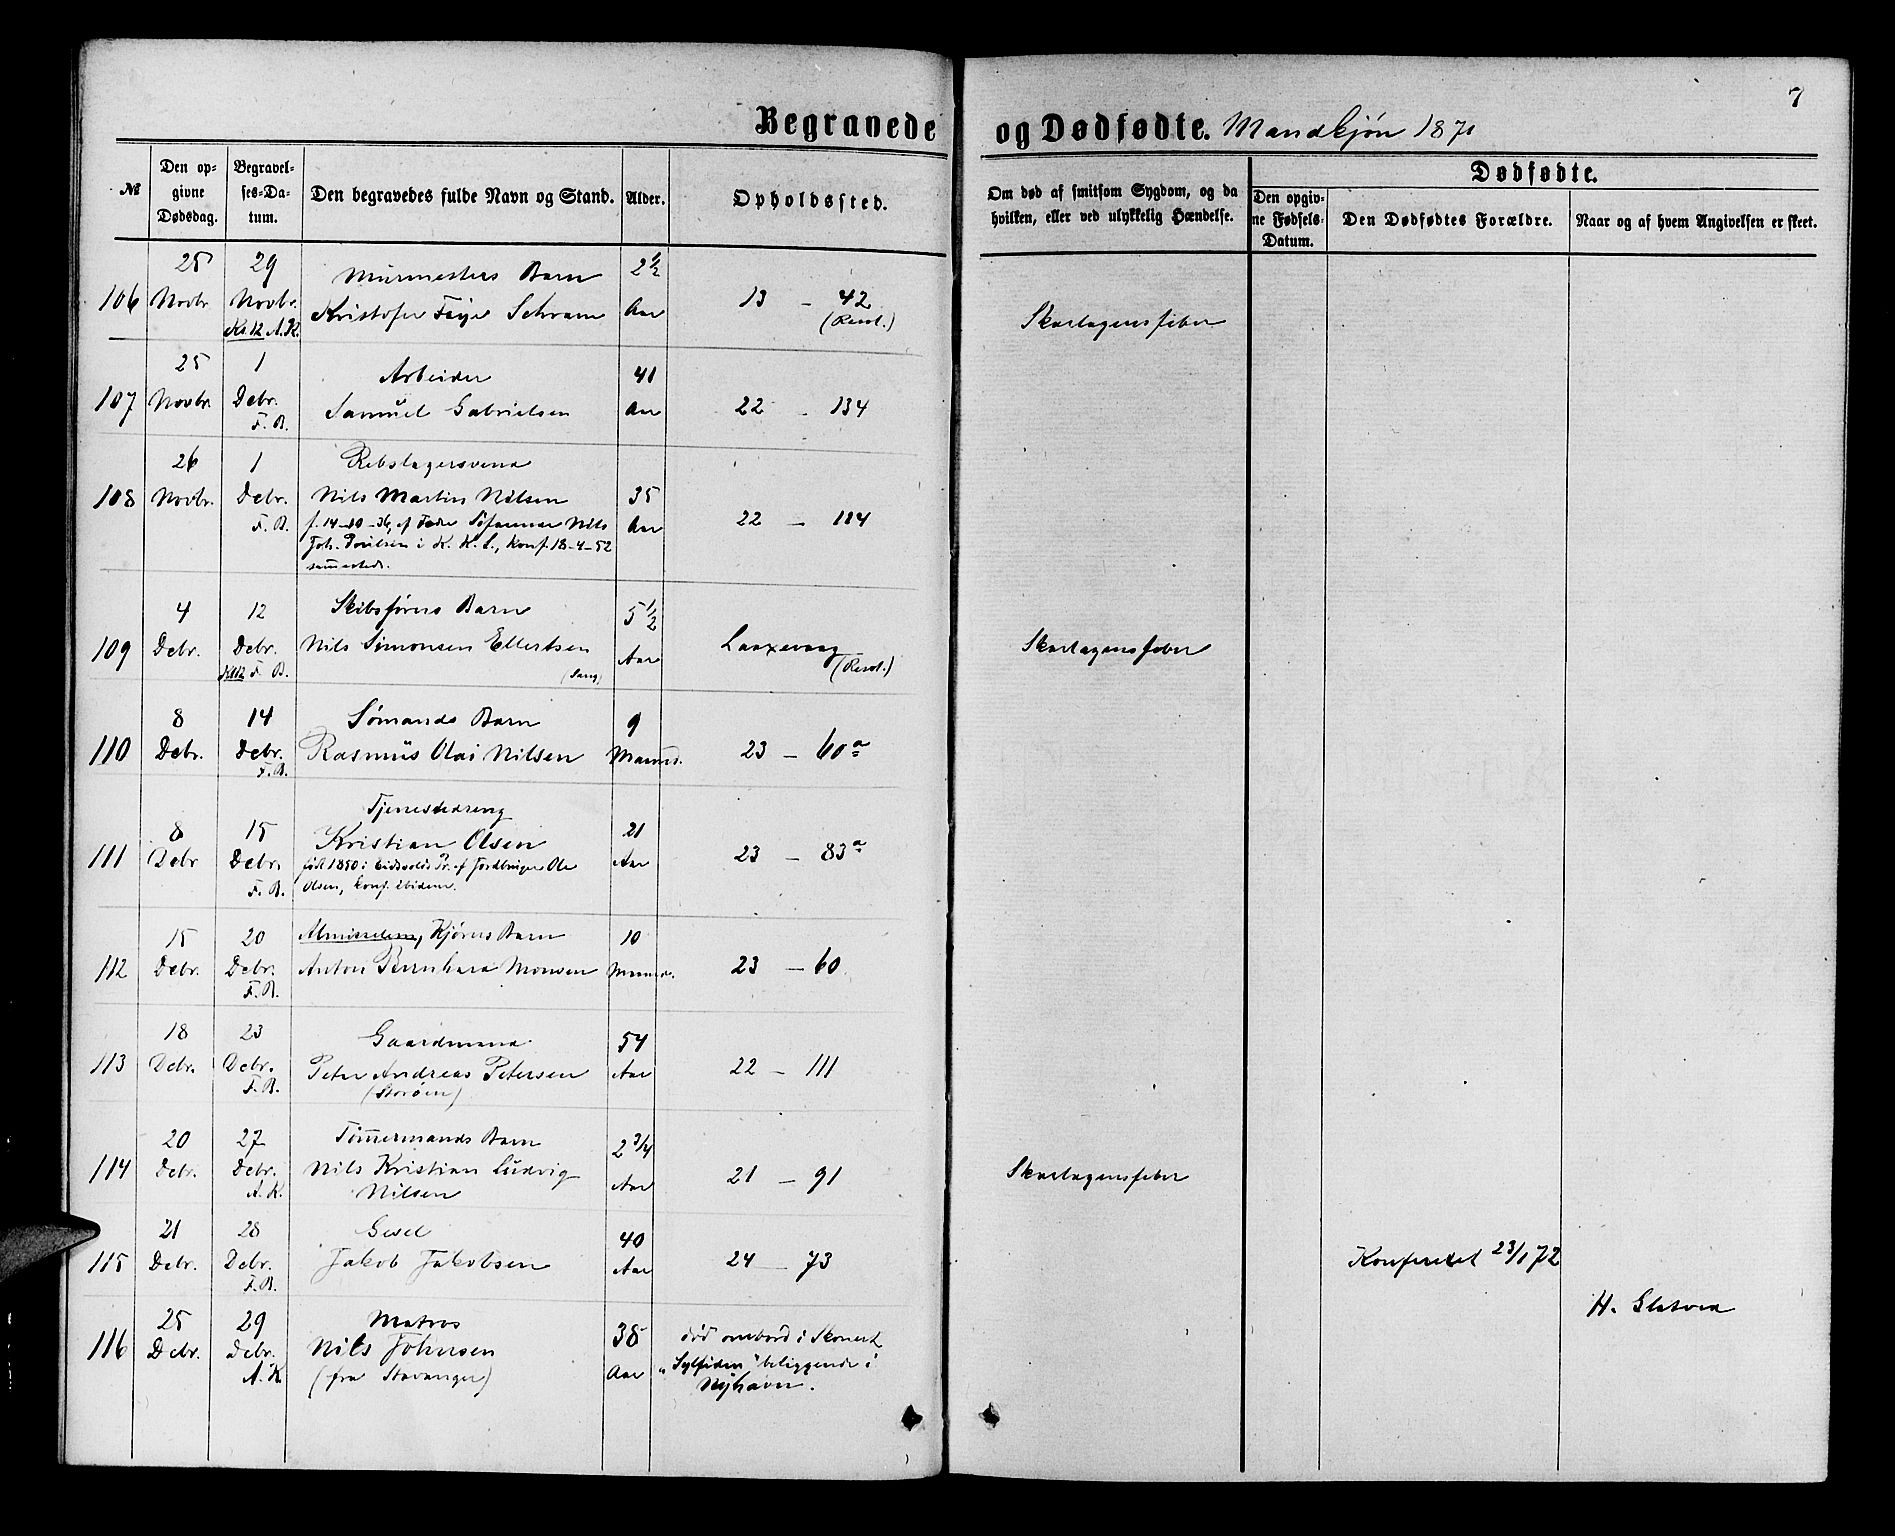 7
Begravede og Dødfødte. Mandkjøn 1871
№
Den opgivne Dødsdag.
Begravelses-Datum.
Den begravedes fulde Navn og Stand.
Alder.
Opholdssted.
Om død af smitsom Sygdom, og da hvilken, eller ved ulykkelig Hændelse.
Dødfødte.
Den opgivne Fødsels-Datum.
Den Dødfødtes Forældre.
Naar og af hvem Angivelsen er skeet.
25 29 Murmesters Barn 2 1/2
106 Novbr. Novbr. Kristofer Faye Schram Aar 13 - 42 Skarlagensfeber
A.K. (Resol.)
25 1 Arbeider 41
107 Novbr. Debr. Samuel Gabrielsen Aar 22 - 134
F.B.
26 1 Rebslagersvend
108 Novbr. Debr. Nils Martin Nilsen 35
F.B. f. 14-10-36, af Fædre Nils Aar 22 - 114
Joh. Poulsen i K. K. S., konf. 18-4-52
sammesteds.
4 12 Skibsførers Barn 5 1/2
109 Debr. Debr. Nils Simonsen Ellertsen Aar Laxevaag Skarlagensfeber
F.B. (Resol.)
8 14 Sømands Barn 9
110 Debr. Debr. Rasmus Olai Nilsen Maaned. 23 - 60a
F.B.
Tjenestedreng
8 15 Kristian Olsen 21
111 Debr. Debr. født 1850 i Eidsvolds Pr. af Jordbruger Ole Aar 23 - 83a
F.B. Olsen, konf. ibidem.
15 20 Kjørers Barn 10
112 Debr. Debr. Anton Bernhard Monsen Maaned. 23 - 60
F.B.
18 23 Gaardmand 54
113 Debr. Debr. Peter Andreas Petersen Aar 22 - 111
F.B. (Storøen)
20 27 Tømmermands Barn 2 3/4
114 Debr. Debr. Nils Kristian Ludvig Aar 21 - 91 Skarlagensfeber
A.K. Nilsen
21 28 Gesel 40
115 Debr. Debr. Jakob Jakobsen Aar 24 - 73 Konfereret 23/1 72
F.B.
H. Slatved
25 29 Matros 38
116 Debr. Debr. Nils Johnsen Aar død ombord i Skonert
A.K. (fra Stavanger) „Sylfiden" beliggende i
Nyhavn.